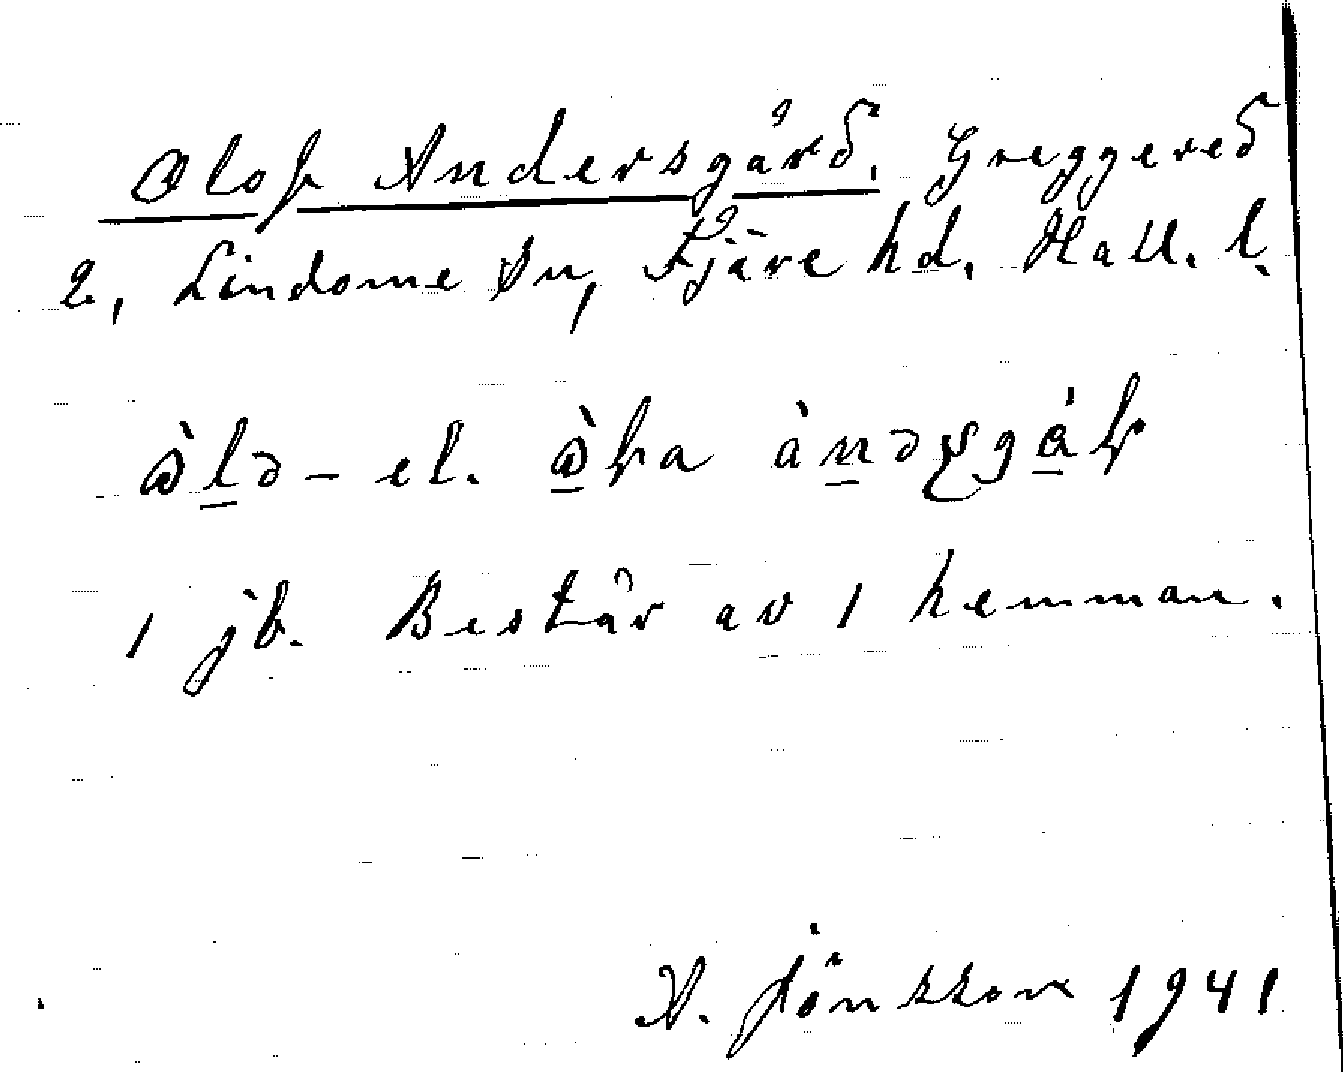 Olof Andersgård, Greggered
2, Lindome sn, Fjäre hd. Hall. l.
el.
1 jb. Består av 1 hemman.
A. Jönsson 1941